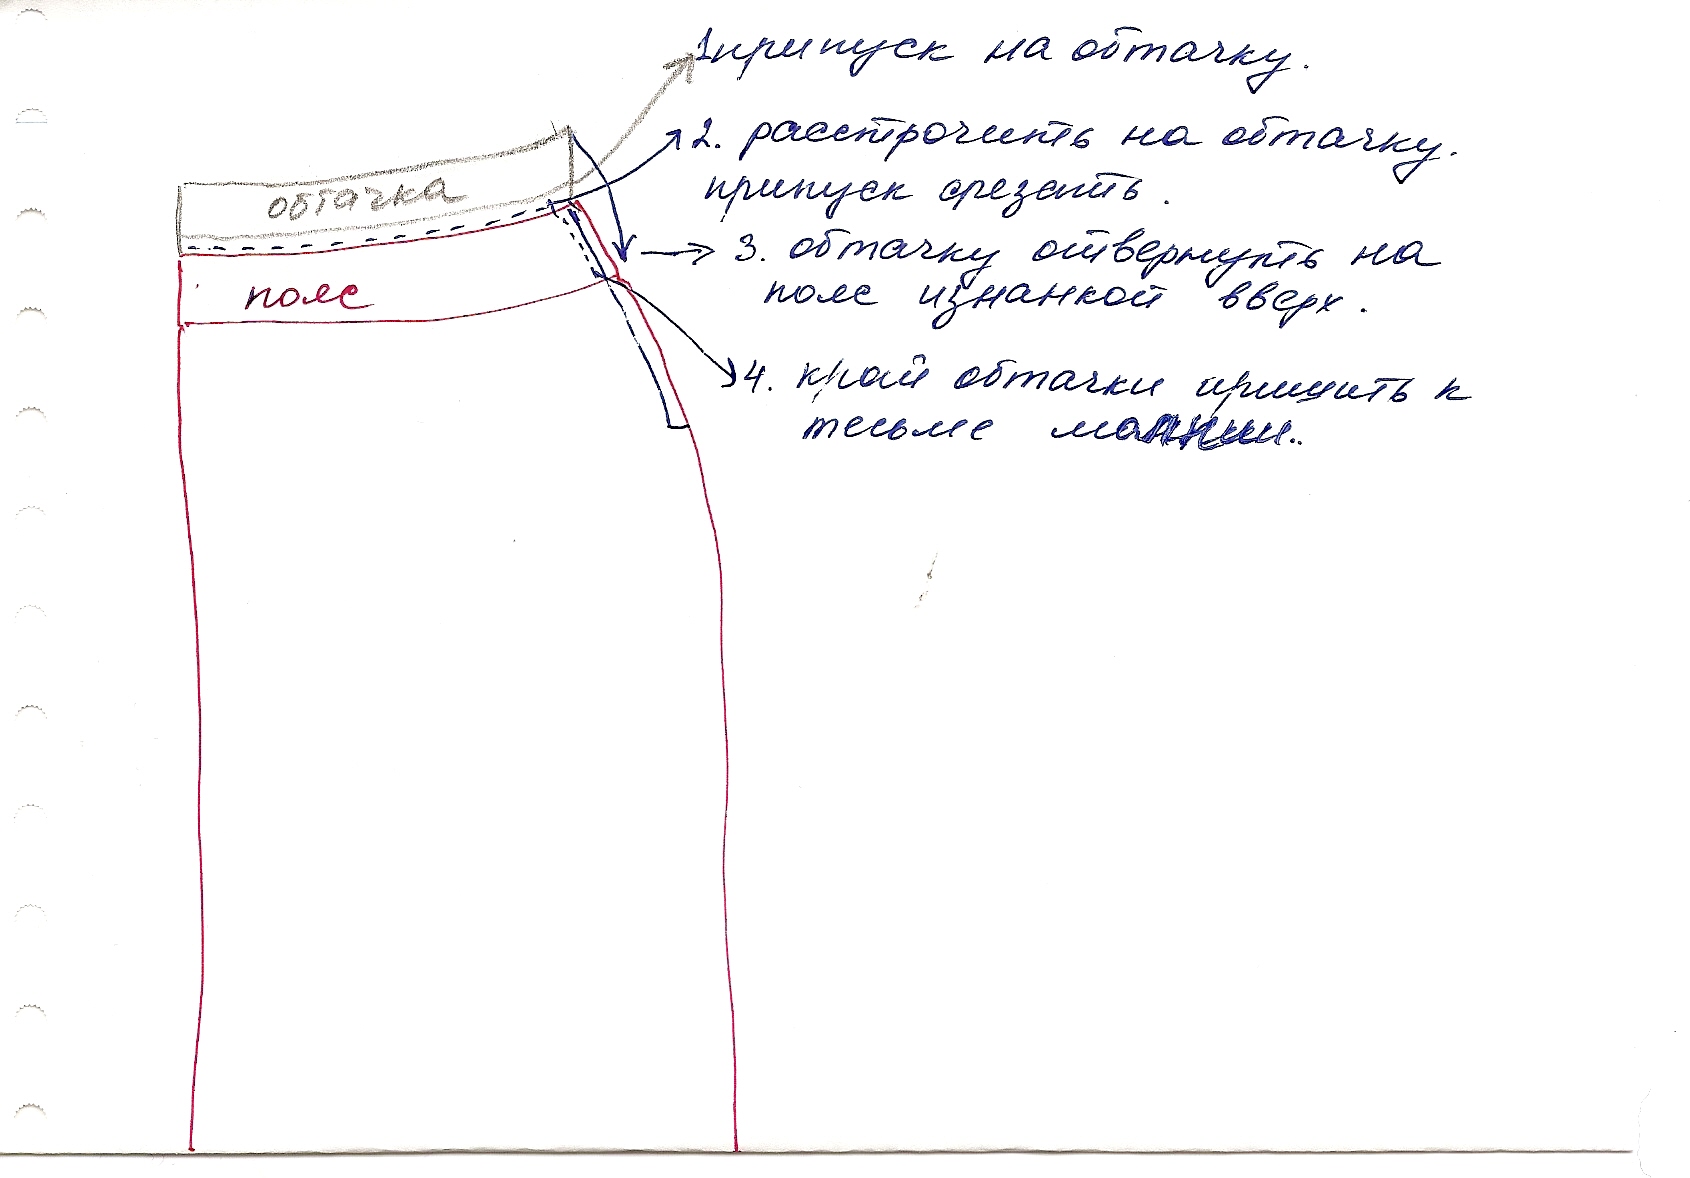 1 припуск на обтачку.
2. расстрочить на обтачку.
припуск срезать.
обтачка
3. обтачку отвернуть на
пояс изнанкой вверх.
пояс
4. край обтачки пришить к
тесьме молнии.